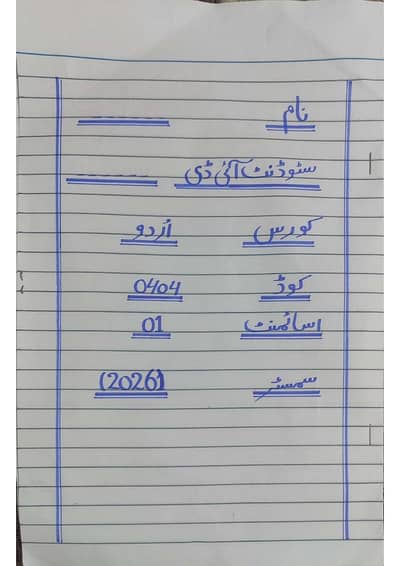 نام ـــــــــ
سٹوڈنٹ آئی ڈی ـــــــــ
کورس اُردو
کوڈ 0404
اسائمنٹ 01
سمسٹر (2026)